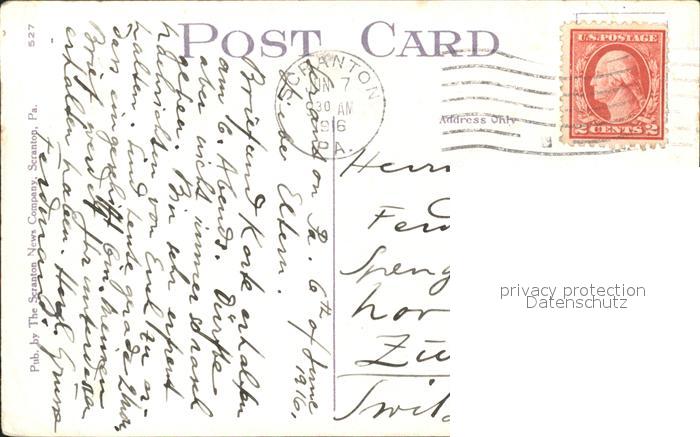 527
POST CARD
Pub. by The Scranton News Company, Scranton, Pa.
SCRANTON
JUN 7
30 AM
1916
PA.
U.S. POSTAGE
2 CENTS 2
Address Only
Scranton Pa. 6th of June
1916.
Liebe Eltern.
Brief und Karte erhalten
am 6. Abends. Dürfte
aber nicht immer
gehen. Bin sehr erfreut
Nachrichten von Euch zu er-
halten. Sind heute gerade 2 Mon.
dass ich Meinen
Brief werdet Ihr unterdessen
erhalten haben. Herzl. Grüsse
Ferdinand.
Herrn
Fer
Speng
hor
Zü
Switz
privacy protection
Datenschutz